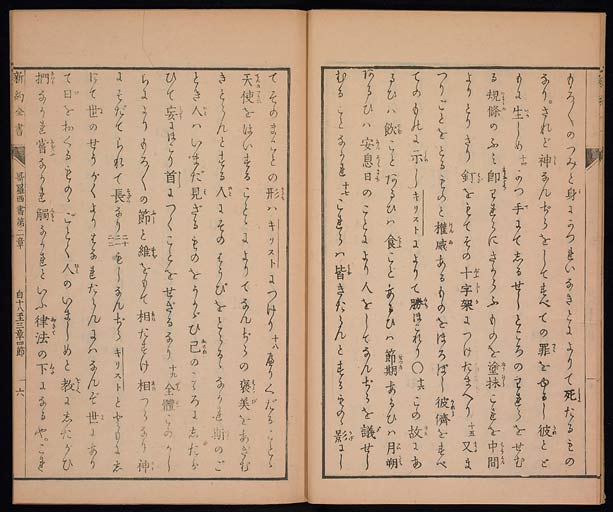 もろ〱のつみと身に によりて死たるもの
あり。されど神なんぢらをしてすべての罪をゆるし彼とと
もに生しめ 十四 かつ手にてしるせしところのわれらをせむ
る規條のふみ即われらにさからふものを塗抹これを中間
よりとりさり釘をもてその十字架につけたまへり 十五 又ま
つりごとをとるものと權威あるものをほろぼし彼儕をすべ
てのものに示しキリストによりて勝ほこれり〇十六この故にあ
るひハ飲こと あるひハ食ことあるひハ節期あるひハ月朔
あるひハ安息日のことにより人をしてなんぢらを議せし
むることなかれ 十七 これらハ皆きたらんとするものの影にし
てそのまことの形ハキリストにつけり 十八 へりくだること
天使をはいすることによりてなんぢらの褒美をあざむ
きとらんとする人に なかれ斯のご
とき人ハいまだ見ざるものをうかゞひ己のこゝろにしたが
ひて妄にほこり首につくことをせざるなり 十九 全體このかし
らによりもろ〱の節と維をもて相たすけ相つらなり神
にそだてられて長なり 二十 もしなんぢらキリストとともにし
にて世の よりはなれたらんにハなんぞ世にあり
て日をおくるものゝごとく人のいましめと教にしたがひ
捫なかれ嘗なかれ觸なかれといふ律法の下にあるや。これ
新約全書 哥羅西書第二章 自十八至三章四節 六